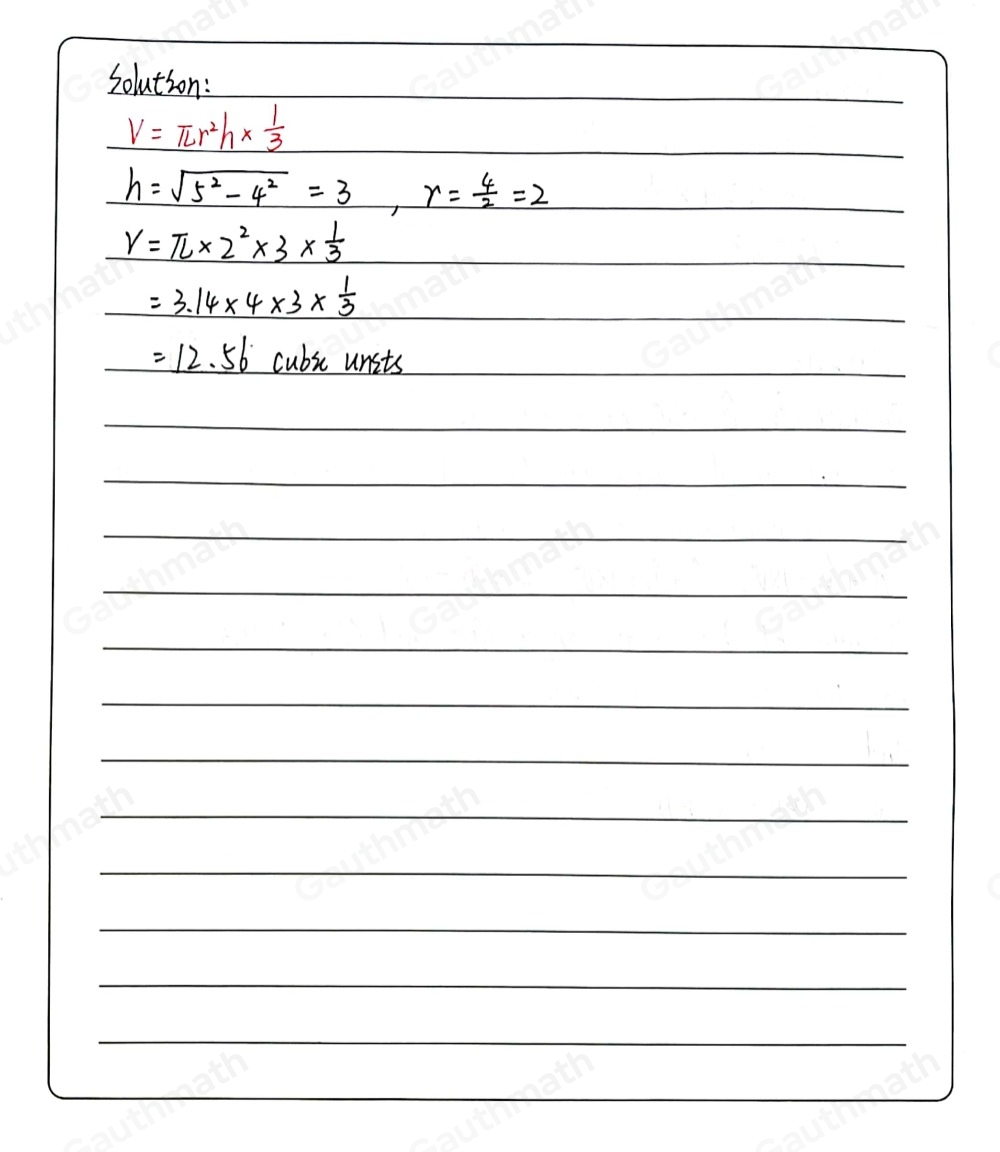 Solution:
V = πr²h × 1/3
h = √5² - 4² = 3 , r = 4/2 = 2
V = π × 2² × 3 × 1/3
= 3.14 × 4 × 3 × 1/3
= 12.56 cubic units
Gauthmath